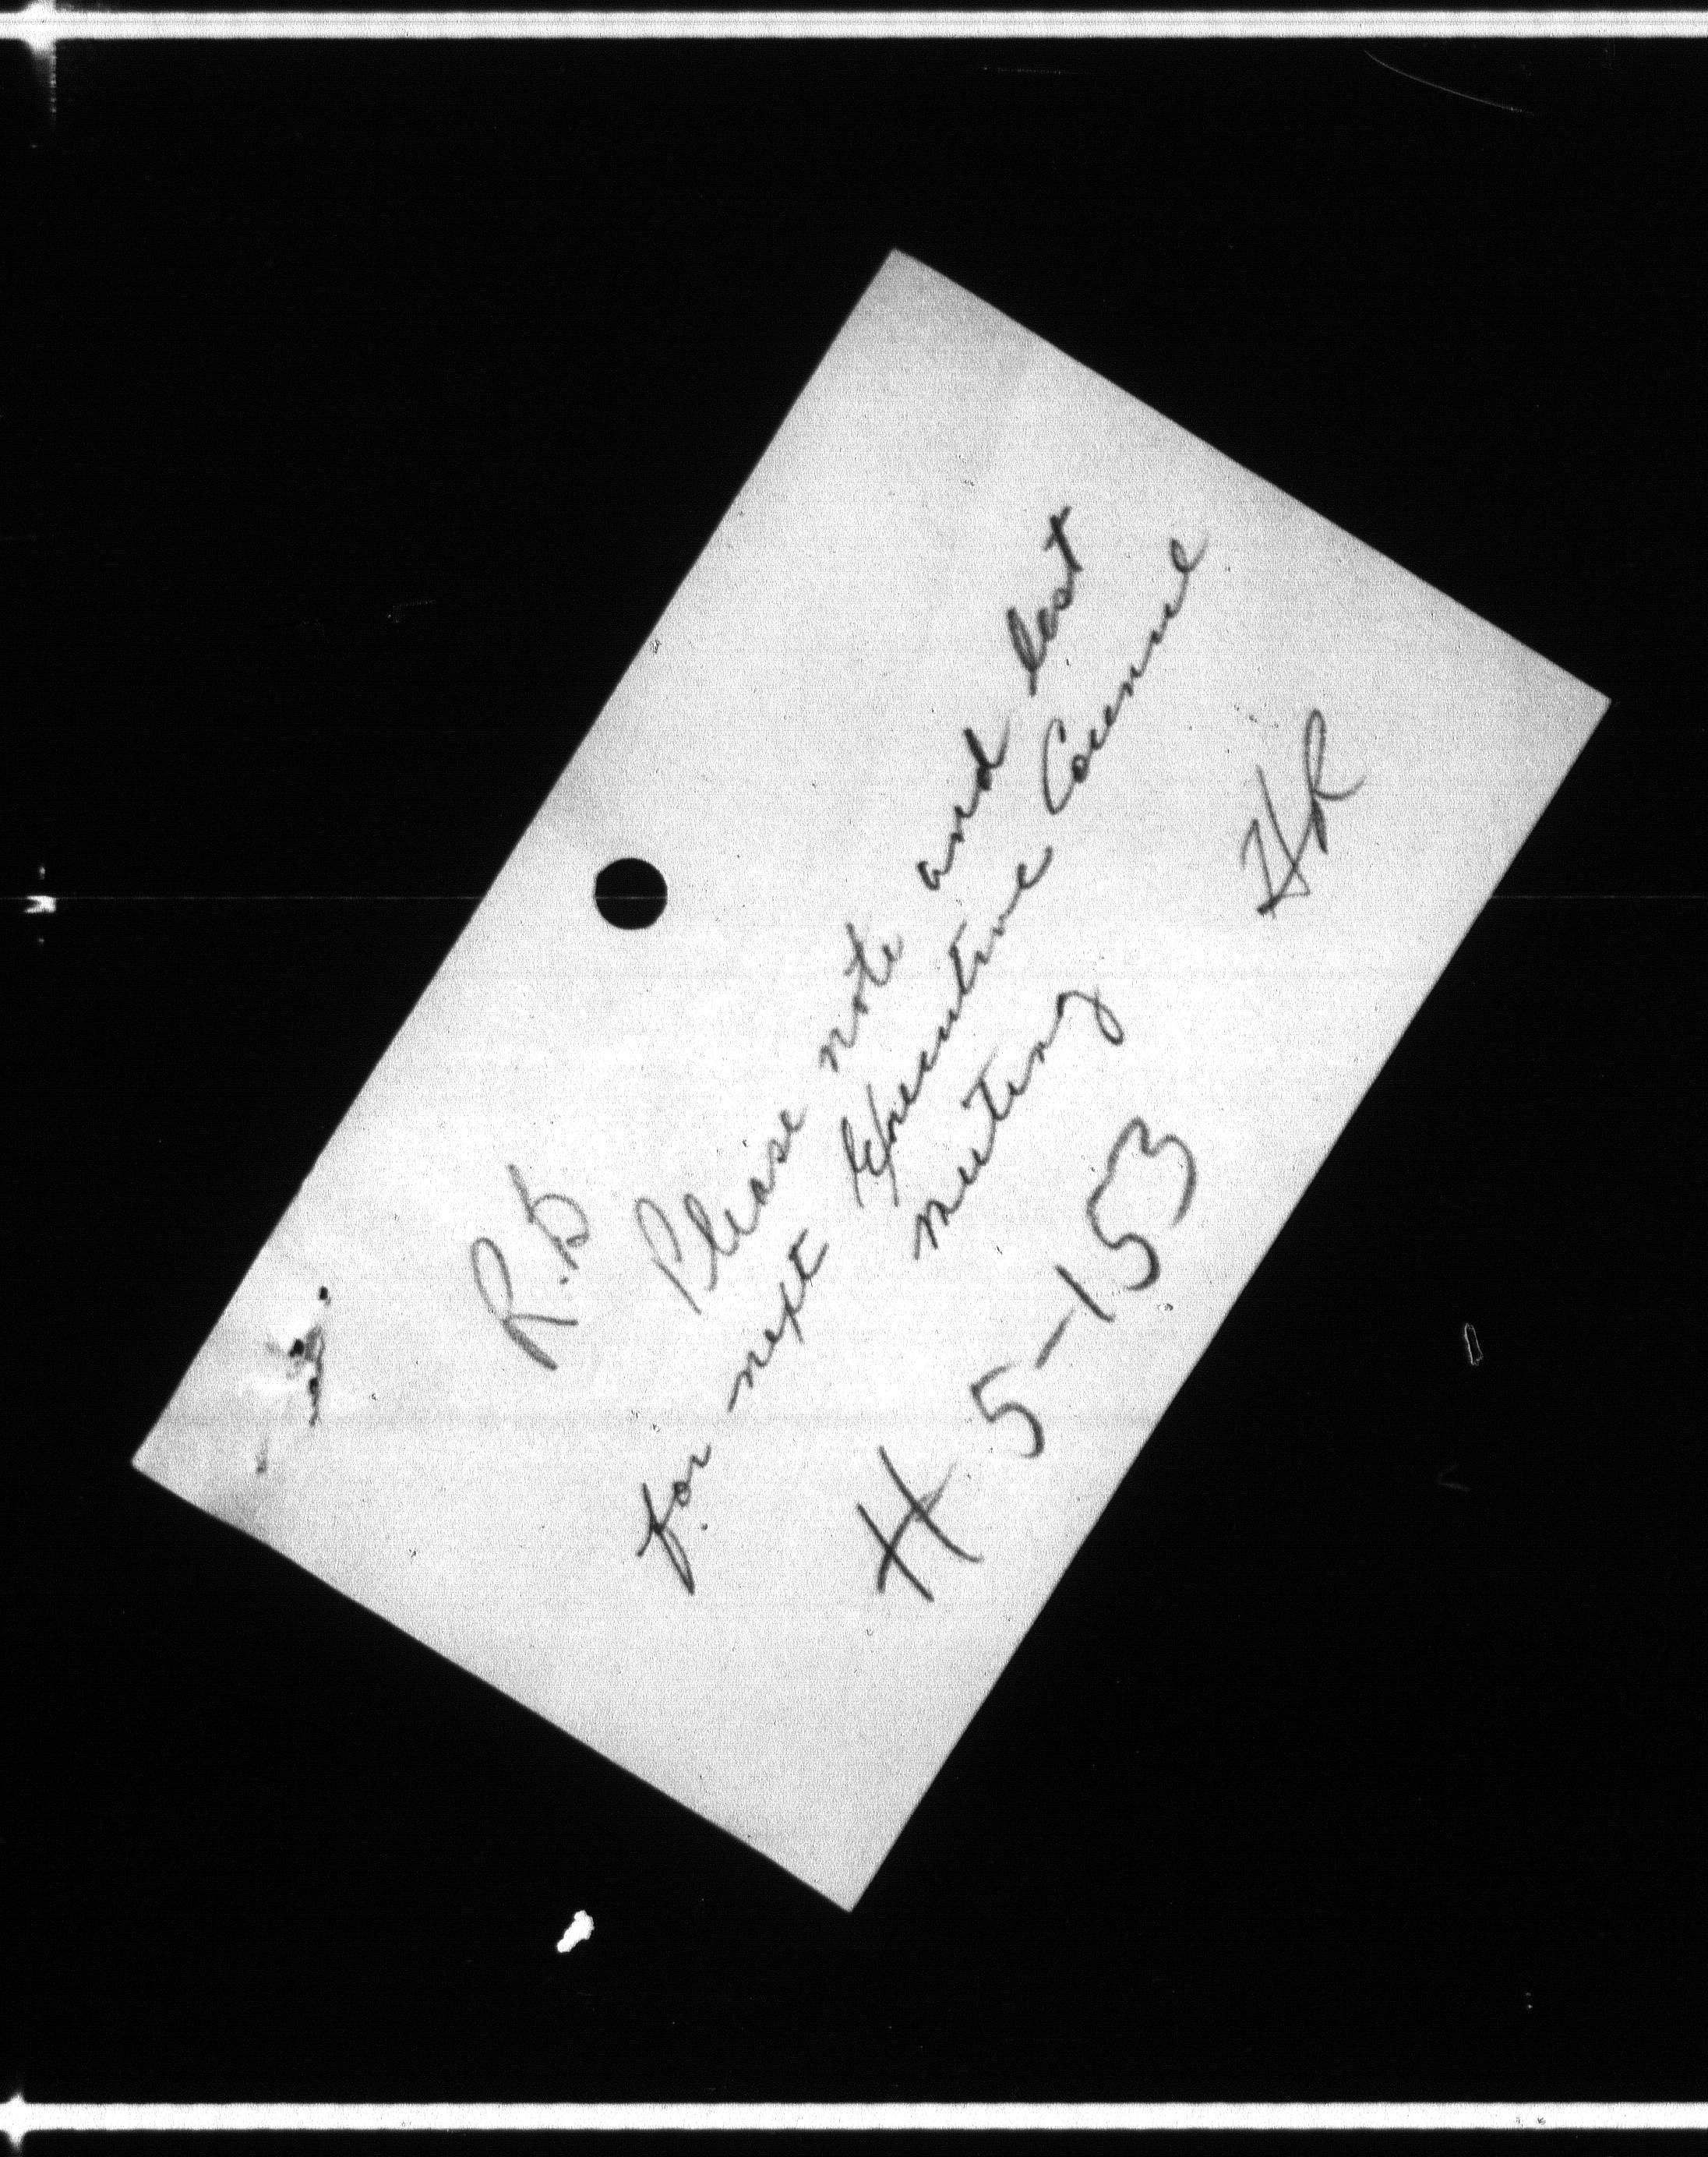 R.B
Please note and list
for next Executive Council
meeting
HR
H 5-153